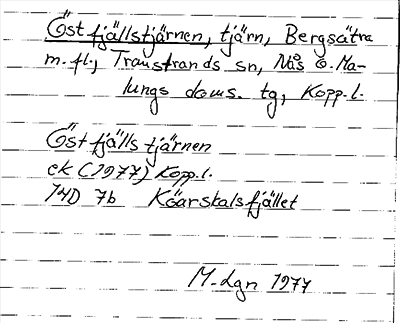 Östfjällstjärnen, tjärn, Bergsätra
m.fl., Transtrands sn, Nås o. Ma-
lungs doms. tg, Kopp. l.
Östfjällstjärnen
ek (1977) Kopp. l.
14D 7b Köarskalsfjället
M-dgn 1977